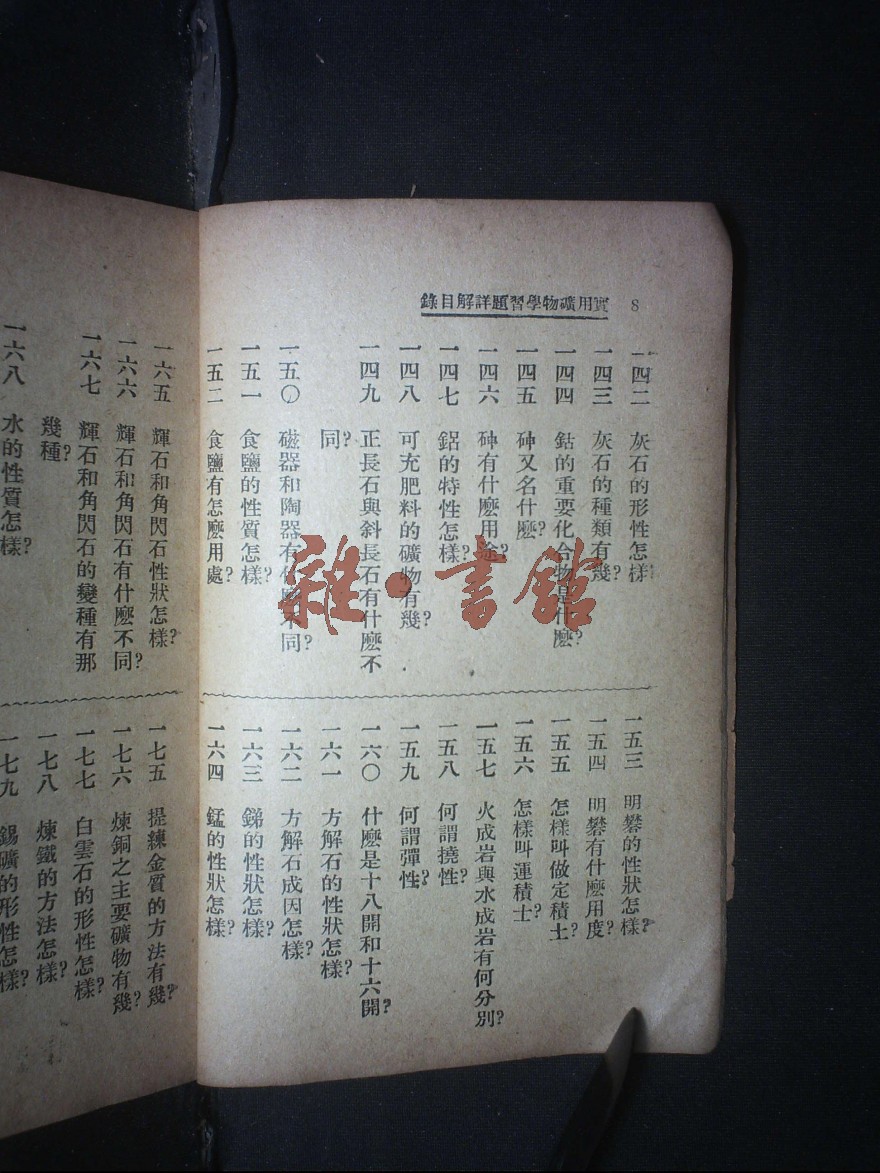 8 實用礦物學習題詳解目錄
一四二 灰石的形性怎樣?
一四三 灰石的種類有幾?
一四四 鈷的重要化合物是什麽?
一四五 砷又名什麽?
一四六 砷有什麽用途?
一四七 鋁的特性怎樣?
一四八 可充肥料的礦物有幾?
一四九 正長石與斜長石有什麽不
同?
一五〇 磁器和陶器有什麽不同?
一五一 食鹽的性質怎樣?
一五二 食鹽有怎麽用處?
一五三 明礬的性狀怎樣?
一五四 明礬有什麽用度?
一五五 怎樣叫做定積土?
一五六 怎樣叫運積土?
一五七 火成岩與水成岩有何分別?
一五八 何謂撓性?
一五九 何謂彈性?
一六〇 什麽是十八開和十六開?
一六一 方解石的性狀怎樣?
一六二 方解石成因怎樣?
一六三 銻的性狀怎樣?
一六四 錳的性狀怎樣?
一六五 輝石和角閃石性狀怎樣?
一六六 輝石和角閃石有什麽不同?
一六七 輝石和角閃石的變種有那
幾種?
一六八 水的性質怎樣?
一七五 提練金質的方法有幾?
一七六 煉銅之主要礦物有幾?
一七七 白雲石的形性怎樣?
一七八 煉鐵的方法怎樣?
一七九 錫礦的形性怎樣?
雜·書館